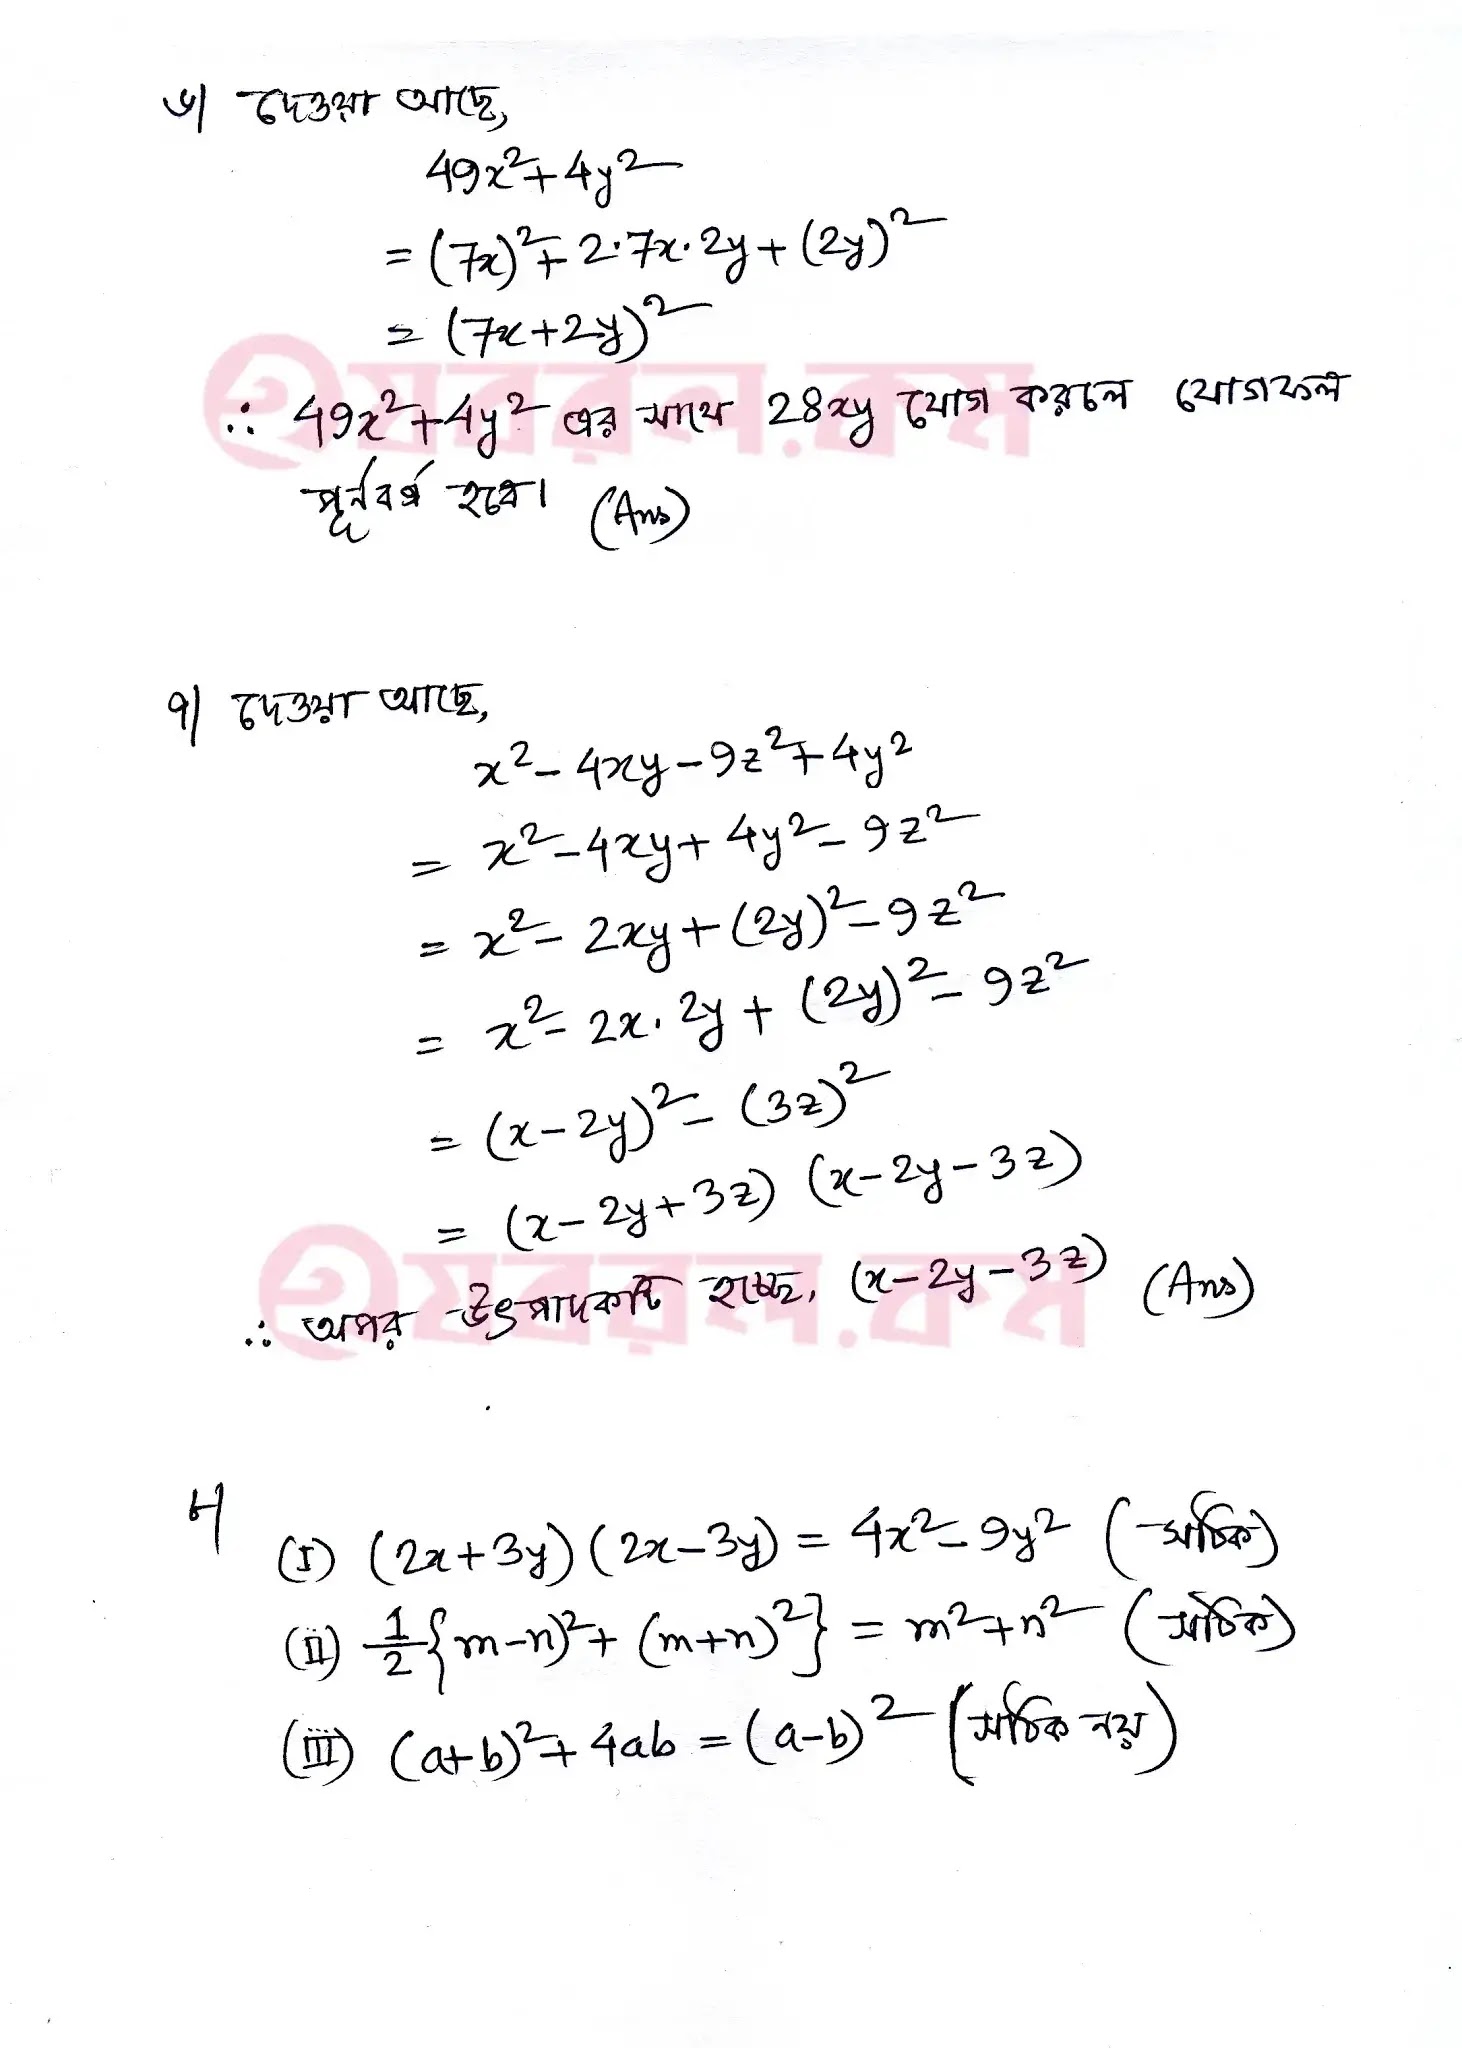 ৬| দেওয়া আছে,
49x²+4y²
=(7x)²+2·7x·2y+(2y)²
=(7x+2y)²
হযবরল.কম
∴ 49x²+4y² এর সাথে 28xy যোগ করলে যোগফল
পূর্নবর্গ হবে। (Ans)
৭| দেওয়া আছে,
x²-4xy-9z²+4y²
= x²-4xy+4y²-9z²
= x²-2xy+(2y)²-9z²
= x²-2x.2y+(2y)²-9z²
= (x-2y)²-(3z)²
= (x-2y+3z) (x-2y-3z)
হযবরল.কম
∴ অপর উৎপাদকটি হচ্ছে, (x-2y-3z) (Ans)
৮|
(I) (2x+3y)(2x-3y) = 4x²-9y² (সঠিক)
(II) ½{m-n)²+(m+n)²} = m²+n² (সঠিক)
(III) (a+b)²+4ab = (a-b)² (সঠিক নয়)